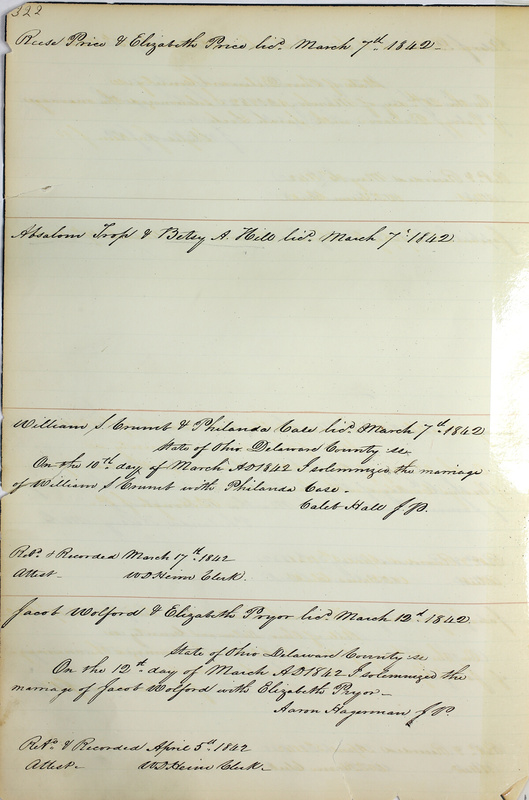 322
Reese Price & Elizabeth Price licd. March 7th. 1842
Absalom & Betsy A. Hill licd. March 7th. 1842
William S Crumt & Philanda Case licd. March 7th. 1842
State of Ohio Delaware County ss.
On the 10th day of March AD 1842 I solemnized the marriage
of William S Crumt with Philanda Case -
Caleb Hall J P.
Retd. & Recorded March 17th. 1842
Attest - W D Heim Clerk.
Jacob Wolford & Elizabeth Pryor licd. March 12d. 1842
State of Ohio Delaware County ss
On the 12th. day of March AD 1842 I solemnized the
marriage of Jacob Wolford with Elizabeth Pryor -
Aaron Hagerman J P.
Retd. & Recorded April 5th. 1842
Attest - W D Heim Clerk -